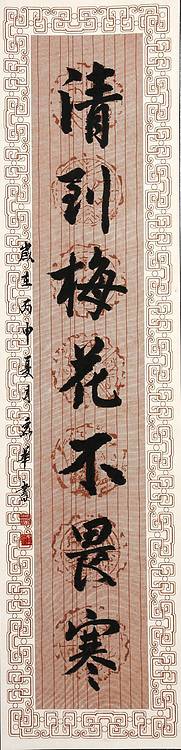 清到梅花不畏寒
歲在丙申夏月
書